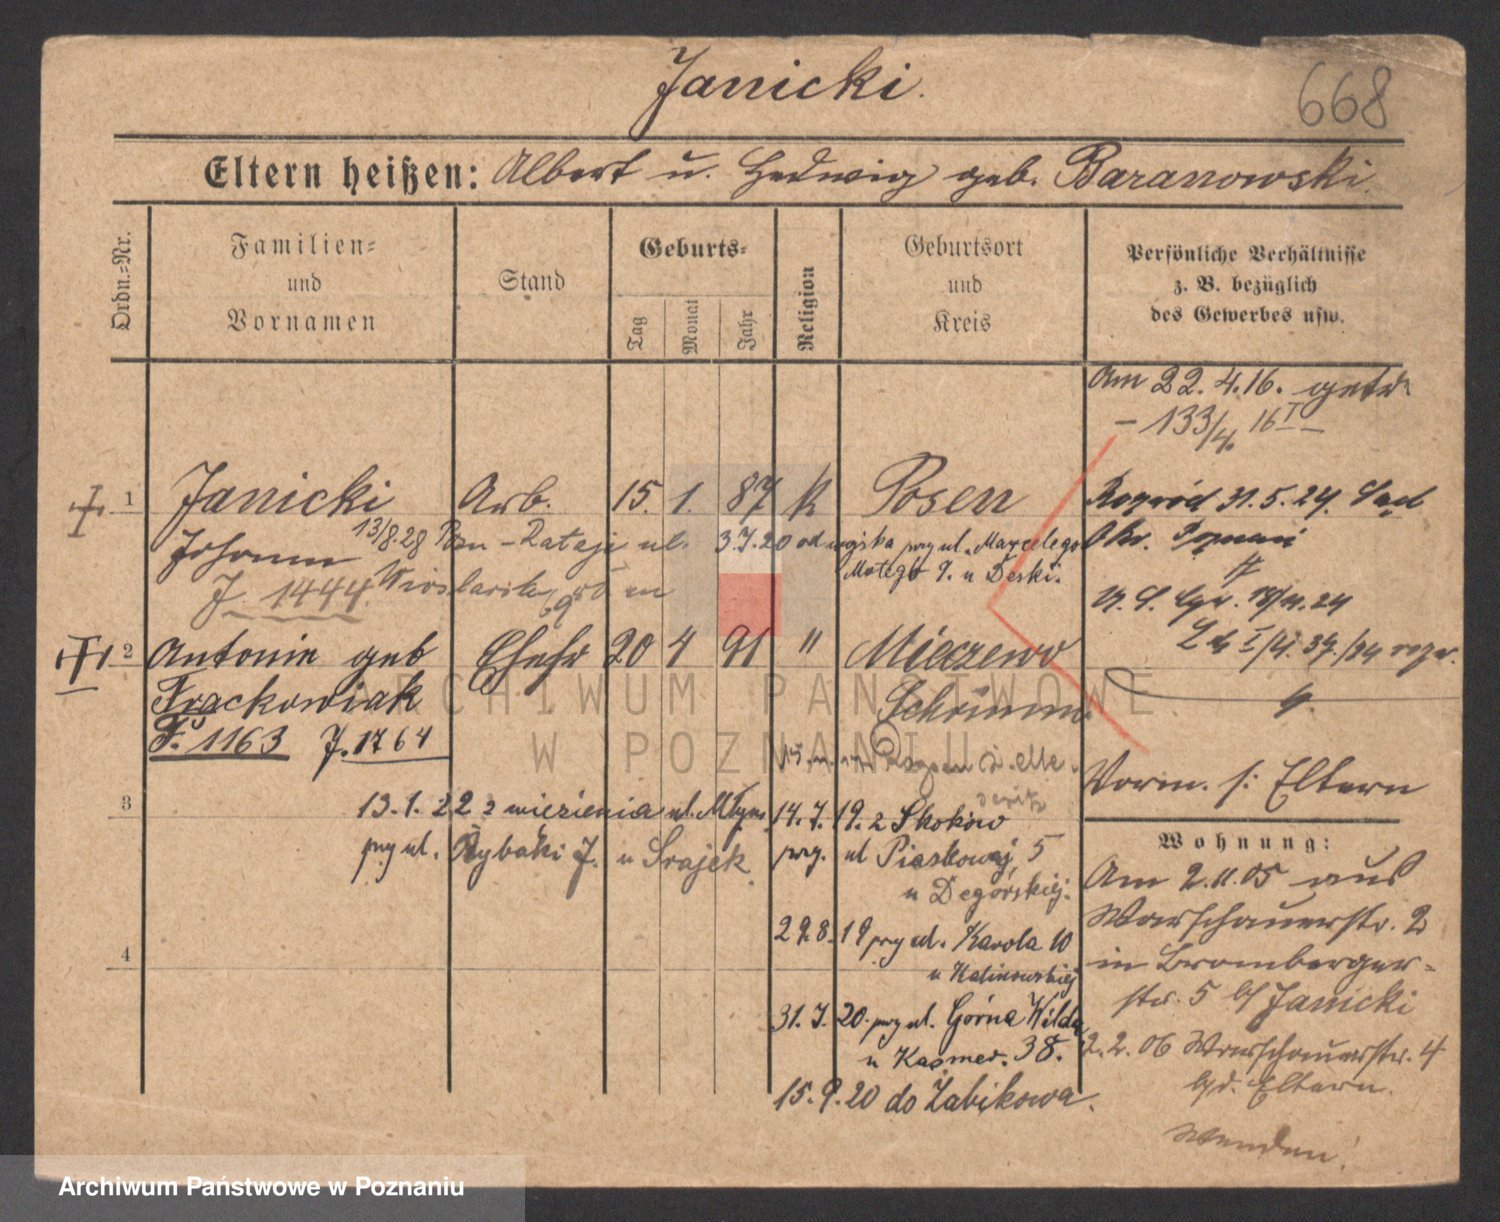 Janicki.
668
Eltern heißen: Albert u. Hedwig geb. Baranowski.
Ordn.-Nr.
Familien-
und
Vornamen
Stand
Geburts-
Tag
Monat
Jahr
Religion
Geburtsort
und
Kreis
Persönliche Verhältnisse
z. B. bezüglich
des Gewerbes usw.
Am 22.4.16.
- 133/4. 16 I -
1 Janicki Arb. 15. 1. 87 K Posen
Johann 13/8.28 Pozn - Rataje ul. 3.7.20 od wojska przy ul. Marcelego
Motego 9. u Deski.
J. 1444.
31.5.24.
2 Antonie geb Ehefr 20 4 91 " Mieczewo
Frackowiak
Schrimm.
F. 1163 J. 1764
Vorm. s: Eltern
3
13.1.22 z wiezienia ul. Młyńs
przy ul. Rybaki 7. u Srajek.
14.7.19. z Skoków
przy. ul Piaskowej 5
u Degórskiej.
29.8.19 przy ul. Karola 10
u Kalinowskiej
31.7.20. przy ul. Górna Wilda
u Kasmer. 38.
15.9.20 do Żabikowa.
4
Wohnung:
Am 2.11.05 aus
Warschauerstr. 2
in Bromberger-
str. 5 bei Janicki
2.2.06 Warschauerstr. 4
bei d. Eltern.
Wenden!
ARCHIWUM PAŃSTWOWE
W POZNANIU
Archiwum Państwowe w Poznaniu